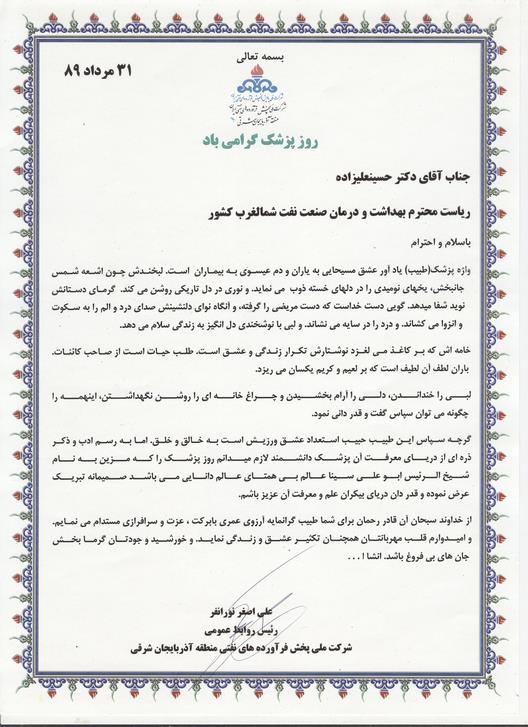 بسمه تعالی
۳۱ مرداد ۸۹
روز پزشک گرامی باد
جناب آقای دکتر حسینعلیزاده
ریاست محترم بهداشت و درمان صنعت نفت شمالغرب کشور
باسلام و احترام
واژه پزشک(طبیب) یاد آور عشق مسیحایی به یاران و دم عیسوی به بیماران است. لبخندش چون اشعه شمس
جانبخش، یخهای نومیدی را در دلهای خسته ذوب می نماید. و نوری در دل تاریکی روشن می کند. گرمای دستانش
نوید شفا میدهد. گویی دست خداست که دست مریضی را گرفته، و آنگاه نوای دلنشینش صدای درد و الم را به سکوت
و انزوا می کشاند. و درد را در سایه می نشاند. و لبی با نوشخندی دل انگیز به زندگی سلام می دهد.
خامه اش که بر کاغذ می لغزد نوشتارش تکرار زندگی و عشق است. طلب حیات است از صاحب کائنات.
باران لطف آن لطیف است که بر لعیم و کریم یکسان می ریزد.
لبی را خنداندن، دلی را آرام بخشیدن و چراغ خانه ای را روشن نگهداشتن، اینهمه را
چگونه می توان سپاس گفت و قدر دانی نمود.
گرچه سپاس این طبیب حبیب استعداد عشق ورزیش است به خالق و خلق. اما به رسم ادب و ذکر
ذره ای از دریای معرفت آن پزشک دانشمند لازم میدانم روز پزشک را که مزین به نام
شیخ الرئیس ابو علی سینا عالم بی همتای عالم دانایی می باشد صمیمانه تبریک
عرض نموده و قدر دان دریای بیکران علم و معرفت آن عزیز باشم.
از خداوند سبحان آن قادر رحمان برای شما طبیب گرانمایه آرزوی عمری بابرکت ، عزت و سرافرازی مستدام می نمایم.
و امیدوارم قلب مهربانتان همچنان تکثیر عشق و زندگی نماید. و خورشید و جودتان گرما بخش
جان های بی فروغ باشد. انشا ا...
علی اصغر نورانفر
رئیس روابط عمومی
شرکت ملی پخش فرآورده های نفتی منطقه آذربایجان شرقی